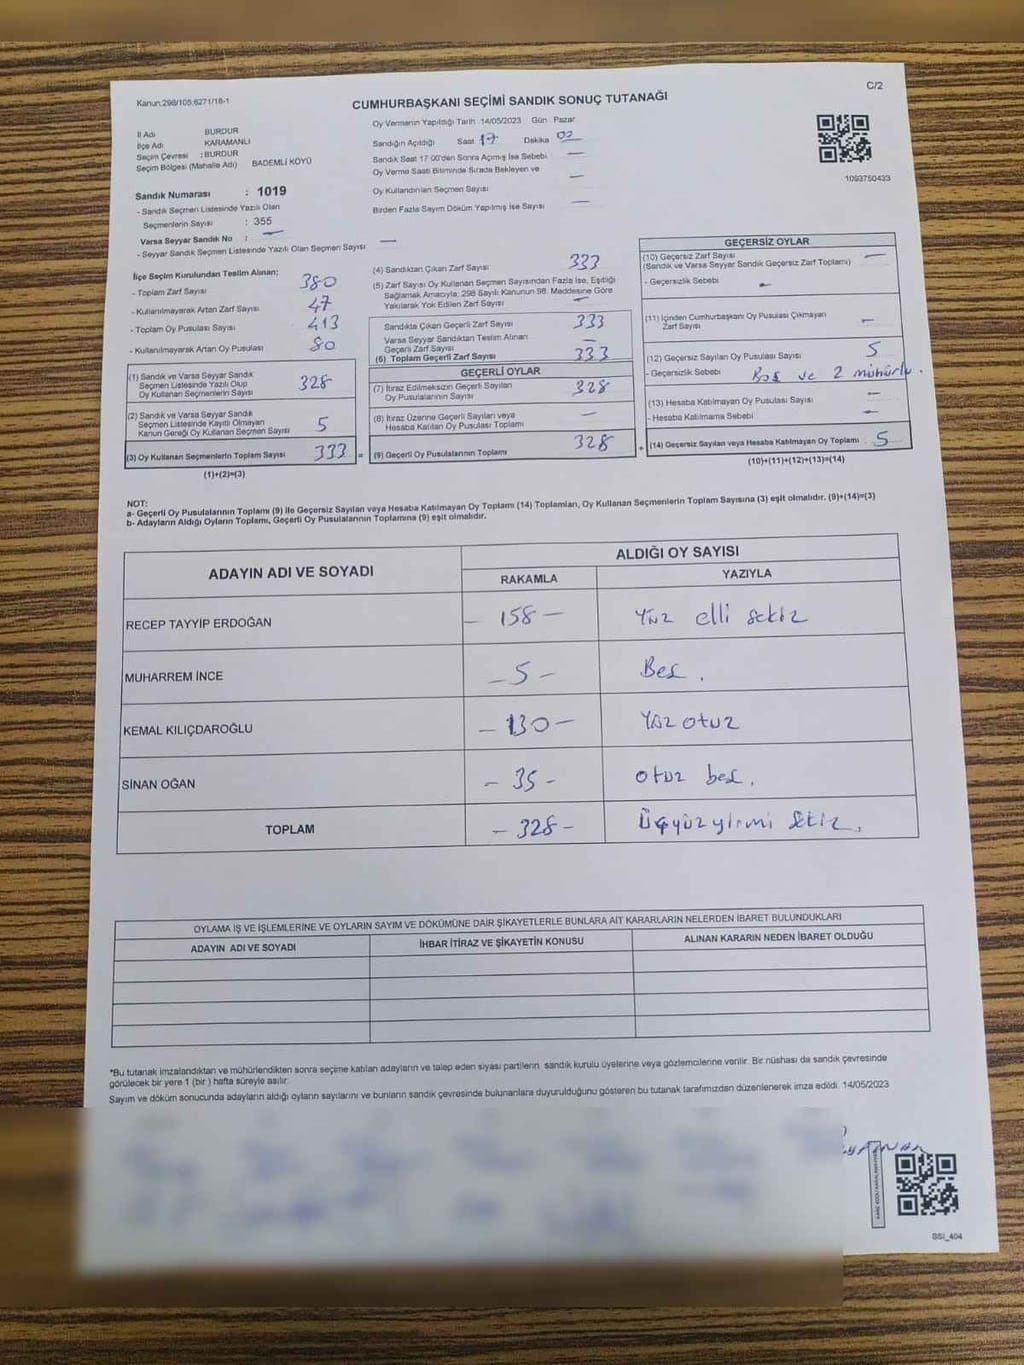 Kanun:298/105;6271/16-1
C/2
CUMHURBAŞKANI SEÇİMİ SANDIK SONUÇ TUTANAĞI
İl Adı BURDUR
İlçe Adı KARAMANLI
Seçim Çevresi : BURDUR
Seçim Bölgesi (Mahalle Adı) BADEMLİ KÖYÜ
Sandık Numarası : 1019
- Sandık Seçmen Listesinde Yazılı Olan
Seçmenlerin Sayısı : 355
Varsa Seyyar Sandık No : —
- Seyyar Sandık Seçmen Listesinde Yazılı Olan Seçmen Sayısı —
Oy Vermenin Yapıldığı Tarih 14/05/2023 Gün Pazar
Sandığın Açıldığı Saat 17 Dakika 00
Sandık Saat 17:00'den Sonra Açılmış İse Sebebi —
Oy Verme Saati Bitiminde Sırada Bekleyen ve —
Oy Kullandırılan Seçmen Sayısı
Birden Fazla Sayım Döküm Yapılmış İse Sayısı —
1093750433
İlçe Seçim Kurulundan Teslim Alınan;
- Toplam Zarf Sayısı 380
- Kullanılmayarak Artan Zarf Sayısı 47
- Toplam Oy Pusulası Sayısı 413
- Kullanılmayarak Artan Oy Pusulası 80
(1) Sandık ve Varsa Seyyar Sandık
Seçmen Listesinde Yazılı Olup
Oy Kullanan Seçmenlerin Sayısı 328
(2) Sandık ve Varsa Seyyar Sandık
Seçmen Listesinde Kayıtlı Olmayan
Kanun Gereği Oy Kullanan Seçmen Sayısı 5
(3) Oy Kullanan Seçmenlerin Toplam Sayısı 333 =
(1)+(2)=(3)
(4) Sandıktan Çıkan Zarf Sayısı 333
(5) Zarf Sayısı Oy Kullanan Seçmen Sayısından Fazla İse, Eşitliği
Sağlamak Amacıyla; 298 Sayılı Kanunun 98. Maddesine Göre
Yakılarak Yok Edilen Zarf Sayısı —
Sandıkta Çıkan Geçerli Zarf Sayısı 333
Varsa Seyyar Sandıktan Teslim Alınan
Geçerli Zarf Sayısı —
(6) Toplam Geçerli Zarf Sayısı 333
GEÇERLİ OYLAR
(7) İtiraz Edilmeksizin Geçerli Sayılan
Oy Pusulalarının Sayısı 328
(8) İtiraz Üzerine Geçerli Sayılan veya
Hesaba Katılan Oy Pusulası Toplamı —
(9) Geçerli Oy Pusulalarının Toplamı 328 +
GEÇERSİZ OYLAR
(10) Geçersiz Zarf Sayısı —
(Sandık ve Varsa Seyyar Sandık Geçersiz Zarf Toplamı)
- Geçersizlik Sebebi —
(11) İçinden Cumhurbaşkanı Oy Pusulası Çıkmayan
Zarf Sayısı —
(12) Geçersiz Sayılan Oy Pusulası Sayısı 5
- Geçersizlik Sebebi Boş ve 2 mühürlü.
(13) Hesaba Katılmayan Oy Pusulası Sayısı —
- Hesaba Katılmama Sebebi —
(14) Geçersiz Sayılan veya Hesaba Katılmayan Oy Toplamı 5
(10)+(11)+(12)+(13)=(14)
NOT:
a- Geçerli Oy Pusulalarının Toplamı (9) ile Geçersiz Sayılan veya Hesaba Katılmayan Oy Toplamı (14) Toplamları, Oy Kullanan Seçmenlerin Toplam Sayısına (3) eşit olmalıdır. (9)+(14)=(3)
b- Adayların Aldığı Oyların Toplamı, Geçerli Oy Pusulalarının Toplamına (9) eşit olmalıdır.
ADAYIN ADI VE SOYADI
ALDIĞI OY SAYISI
RAKAMLA YAZIYLA
RECEP TAYYİP ERDOĞAN - 158 - Yüz elli sekiz
MUHARREM İNCE - 5 - Beş.
KEMAL KILIÇDAROĞLU - 130 - Yüz otuz
SİNAN OĞAN - 35 - otuz beş.
TOPLAM - 328 - Üçyüz yirmi sekiz.
OYLAMA İŞ VE İŞLEMLERİNE VE OYLARIN SAYIM VE DÖKÜMÜNE DAİR ŞİKAYETLERLE BUNLARA AİT KARARLARIN NELERDEN İBARET BULUNDUKLARI
ADAYIN ADI VE SOYADI İHBAR İTİRAZ VE ŞİKAYETİN KONUSU ALINAN KARARIN NEDEN İBARET OLDUĞU
*Bu tutanak imzalandıktan ve mühürlendikten sonra seçime katılan adayların ve talep eden siyasi partilerin sandık kurulu üyelerine veya gözlemcilerine verilir. Bir nüshası da sandık çevresinde
görülecek bir yere 1 (bir) hafta süreyle asılır.
Sayım ve döküm sonucunda adayların aldığı oyların sayılarını ve bunların sandık çevresinde bulunanlara duyurulduğunu gösteren bu tutanak tarafımızdan düzenlenerek imza edildi. 14/05/2023
SSI_404